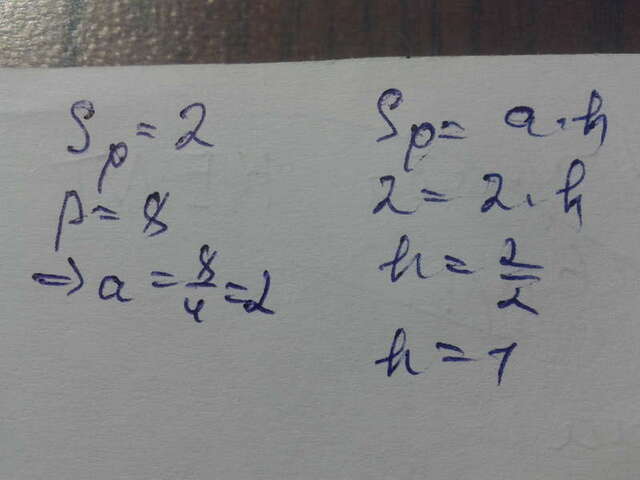 Sp = 2
P = 8
=> a = 8/4 = 2
Sp = a · h
2 = 2 · h
h = 2/2
h = 1